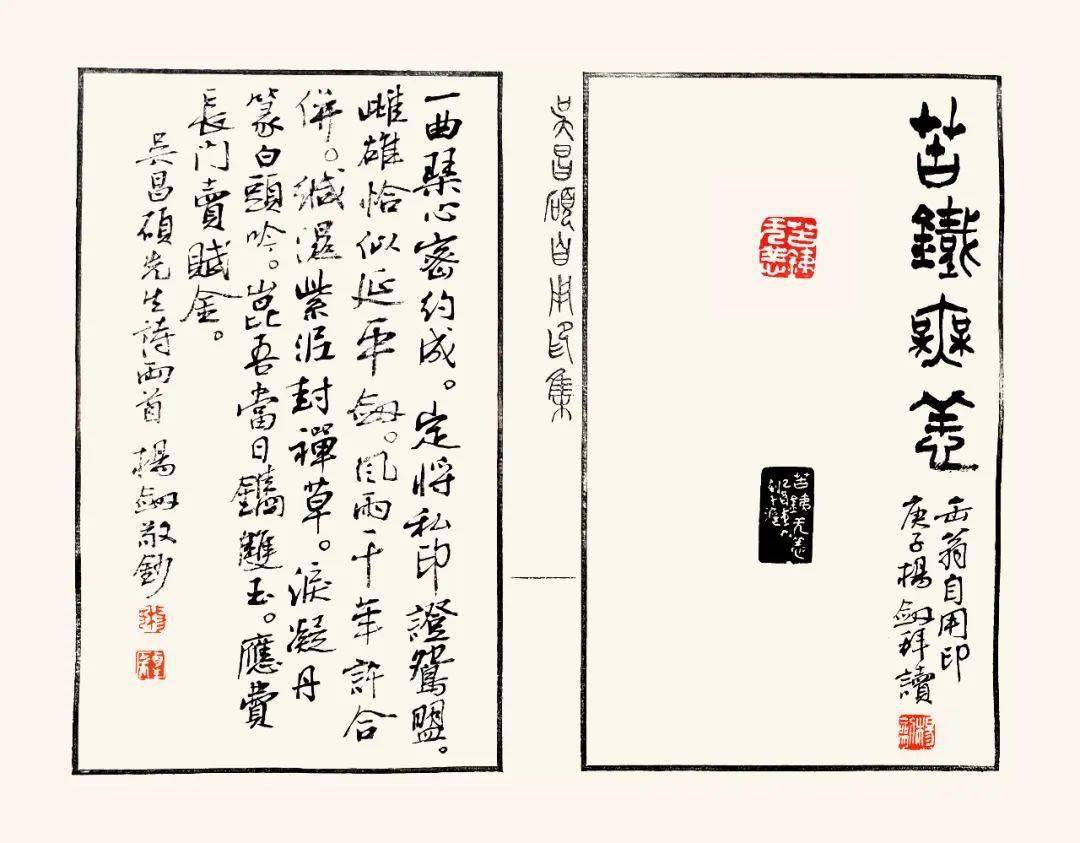 苦鐵無恙
缶翁自用印
庚子楊劍拜讀
苦銕无恙
苦銕无恙
吳昌碩自用印集
一曲琴心密約成。定將私印證鴛盟。
雌雄恰似延平劍。風雨千年許合
併。緘濕紫泥封禪草。淚凝丹
篆白頭吟。崑吾當日鐫雙玉。應費
長門賣賦金。
吳昌碩先生詩兩首 楊劍敬鈔